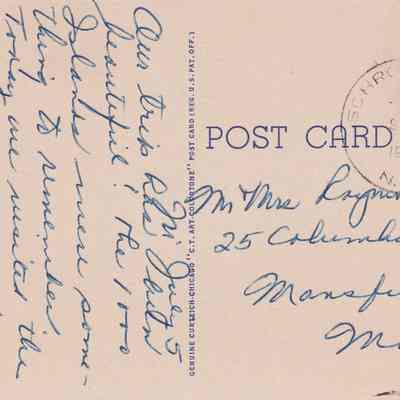 Fri July 5
Our trip has been
beautiful! The 1000
Islands were some-
thing to remember.
Today we visited the
GENUINE CURTEICH-CHICAGO "C.T. ART-COLORTONE" POST CARD (REG. U.S. PAT. OFF.)
POST CARD
SCHRO
N.
Mr + Mrs Raymo
25 Columbu
Mansfi